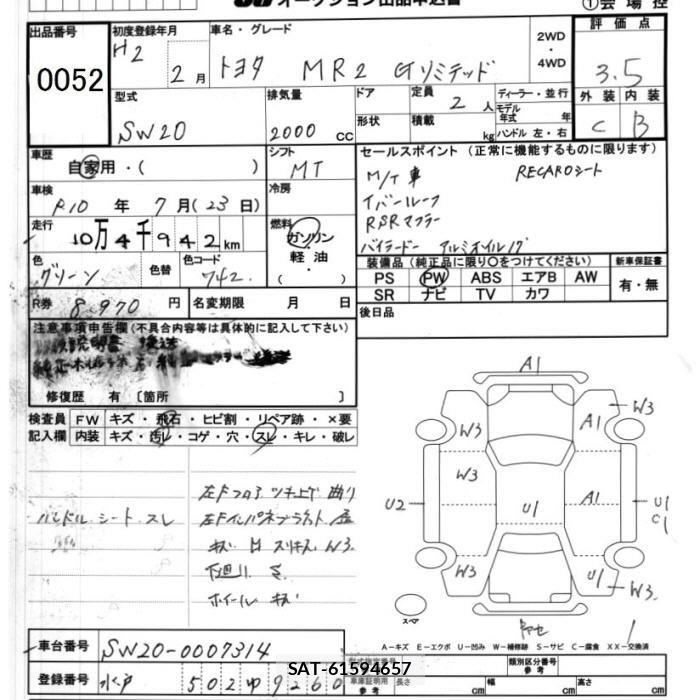 オークション出品申込書 ①会場控
出品番号 初度登録年月 車名・グレード 2WD・4WD 評価点
0052 H2 2月 トヨタ MR2 Gリミテッド 3.5
型式 排気量 ドア 定員 2人 ディーラー・並行 外装 内装
SW20 2000 CC 形状 積載 kg モデル年式 年 ハンドル 左・右 C B
車歴 自家用・( ) シフト MT セールスポイント (正常に機能するものに限ります)
M/T 車 RECAROシート
車検 R10年 7月(23日) 冷房
RSRマフラー
走行 10万4千942km 燃料 ガソリン・軽油・( )
アルミホイル17
色 グリーン 色替 色コード 742 装備品 (純正品に限り○をつけてください) 新車保証書
PS PW ABS エアB AW 有・無
SR ナビ TV カワ
R券 8,970円 名変期限 月 日
後日品
注意事項申告欄 (不具合内容等は具体的に記入して下さい)
修復歴 有 [箇所 ]
検査員記入欄 FW キズ・飛石・ヒビ割・リペア跡・×要
内装 キズ・汚レ・コゲ・穴・スレ・キレ・破レ
ハンドル シート スレ
ホイール キズ
A1
W3 A1 W3
W3
U2 U1 A1 U1 C1
W3 U1 W3
スペア
A−キズ E−エクボ U−凹み W−補修跡 S−サビ C−腐食 XX−交換済
車台番号 SW20-0007314
SAT-61594657
登録番号 水戸 502 ゆ 9260 車体証明用参考 長さ cm 幅 cm 高さ cm
類別区分番号参考